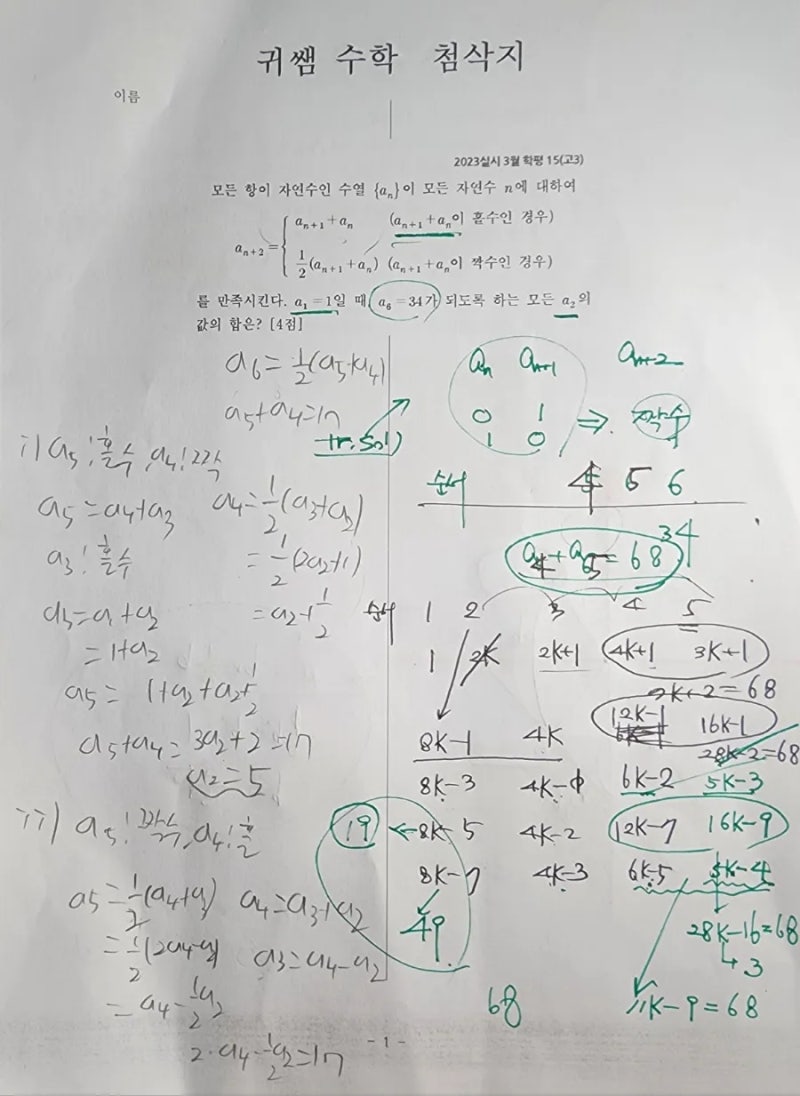 귀쌤 수학 첨삭지
이름
2023실시 3월 학평 15(고3)
모든 항이 자연수인 수열 {aₙ}이 모든 자연수 n에 대하여
aₙ₊₂ = { aₙ₊₁ + aₙ (aₙ₊₁ + aₙ이 홀수인 경우)
1/2(aₙ₊₁ + aₙ) (aₙ₊₁ + aₙ이 짝수인 경우)
를 만족시킨다. a₁ = 1일 때, a₆ = 34가 되도록 하는 모든 a₂의
값의 합은? [4점]
a₆ = 1/2(a₅+a₄)
a₅+a₄=17
i) a₅: 홀수, a₄: 짝
a₅ = a₄+a₃ a₄ = 1/2(a₃+a₂)
a₃: 홀수 = 1/2(2a₂+1)
a₃ = a₁+a₂ = a₂+1/2
= 1+a₂
a₅ = 1+a₂+a₂+1/2
a₅+a₄ = 3a₂+2 = 17
a₂ = 5
ii) a₅: 짝수, a₄: 홀
a₅ = 1/2(a₄+a₃) a₄ = a₃+a₂
= 1/2(2a₄-a₂) a₃ = a₄-a₂
= a₄-1/2a₂
2·a₄-1/2a₂=17
aₙ aₙ₊₁ aₙ₊₂
0 1 ⇒ 짝수
1 0
tr. Sol)
순서 4 5 6
34
a₄+a₅ = 68
순서 1 2 3 4 5
1 2K 2K+1 4K+1 3K+1
7K+2=68
8K-1 4K 12K-1 16K-1
28K-2=68
8K-3 4K-1 6K-2 5K-3
19 ← 8K-5 4K-2 12K-7 16K-9
8K-7 4K-3 6K-5 5K-4
49 28K-16=68
↳ 3
68 11K-9=68
- 1 -